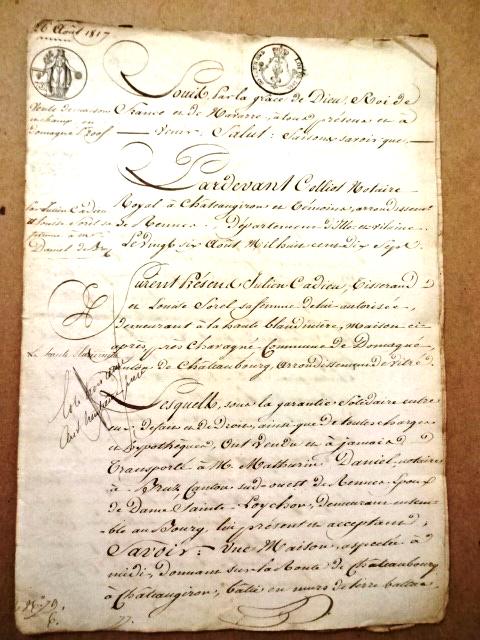 26 Août 1817
Louis Par la grâce de Dieu, Roi de
France et de Navarre, a tous présens et à
venir Salut: Faisons savoir que,
Vente de maison
en champ en
Domagné
Pardevant Colliot Notaire
Royal à Châteaugiron et témoins, arrondissement
de Rennes, Département d'Ille et vilaine.
Le vingt six Août Mil huit cent dix Sept.
par Julien Cadieu
et Louise Sorel sa
femme à Mr
Daniel de Bruz
Furent Présens Julien Cadieu, Tisserand
et Louise Sorel sa femme de lui autorisée,
demeurant à la haute blandiniere, Maison ci-
après, près Chavagné Commune de Domagné,
de Châteaubourg, arrondissement de Vitré.
La haute
Lesquels, sous la garantie Solidaire entre
eu de fait et de Droit, ainsi que de toutes charges
et hypothèques, Ont vendu et à jamais
Transporté à Mr. Mathurin Daniel notaire
à Bruz Canton sud-ouest de Rennes Epoux
de Dame Sainte Loychon, demeurant ensem-
ble au Bourg, lui présent et acceptant,
Savoir: Une Maison, aspectée à
midi, Donnant sur la Route de Châteaubourg
à Châteaugiron, bâtie en murs de terre battue,